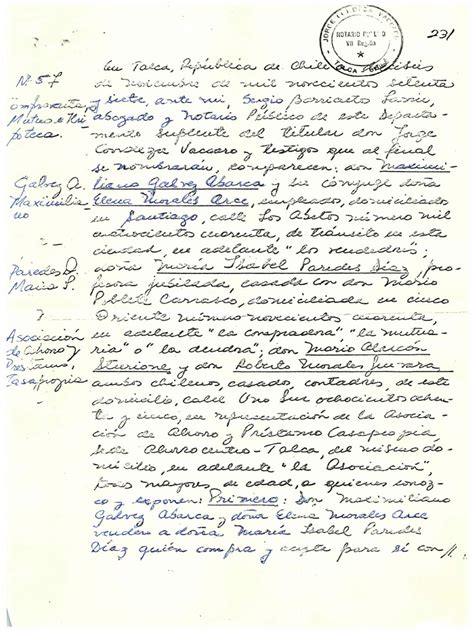 231
JORGE
NOTARIO PUBLICO
VII Región
TALCA
Nº 57
Mutuo e Hi
poteca.
Galvez A.
Maximilia
no
Paredes D.
María I.
y
Asociación
de Ahorro y
Préstamo,
Casapropia
En Talca, República de Chile
de Noviembre de mil novecientos setenta
y siete, ante mí, Sergio
abogado y Notario Público de este departa-
mento suplente del titular don Jorge
Vaccaro y testigos que al final
se nombrarán, comparecen: don Maximi-
liano Galvez Abarca y su cónyuge doña
Elena Morales Arce, empleado, domiciliado
en Santiago, calle Los Abetos número mil
cuarenta, de tránsito en esta
ciudad, en adelante "los vendedores";
doña María Isabel Paredes Díaz, pro-
fesora jubilada, casada con don Mario
Poblete Carrasco, domiciliada en cinco
Oriente número novecientos cuarenta,
en adelante "la compradora", "la mutua-
ria" o "la deudora"; don Mario Alarcón
y don Roberto Morales
ambos chilenos, casado, contadores, de este
domicilio, calle Uno Sur ochocientos ochen-
ta y cinco, en representación de la Asocia-
ción de Ahorro y Préstamo Casapropia,
sede Ahorrocentro-Talca, del mismo do-
micilio, en adelante "la Asociación",
todos mayores de edad, a quienes conoz-
co y exponen: Primero: Don Maximiliano
Galvez Abarca y doña Elena Morales Arce
venden a doña María Isabel Paredes
Díaz quién compra y acepta para sí con//.